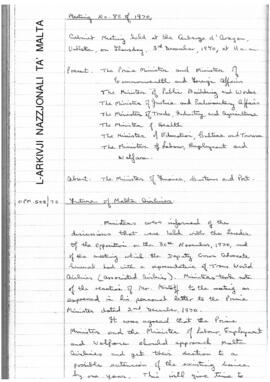 Meeting No. 88 of 1970
Cabinet Meeting held at the Auberge d'Aragon,
Valletta, on Thursday, 3rd December, 1970, at 11 a.m.
Present: The Prime Minister and Minister of
Commonwealth and Foreign Affairs
The Minister of Public Building and Works
The Minister of Justice and Parliamentary Affairs
The Minister of Trade, Industry, and Agriculture
The Minister of Health
The Minister of Education, Culture and Tourism
The Minister of Labour, Employment and
Welfare.
Absent: The Minister of Finance, Customs and Port.
L-ARKIVJI NAZZJONALI TA' MALTA
Future of Malta Airlines
Ministers were informed of the
discussions that were held with the Leader
of the Opposition on the 30th November, 1970, and
of the meeting which the Deputy Crown Advocate
General had with a representative of Trans World
Airlines. Ministers took note
of the reaction of Mr. Mintoff to the meeting as
expressed in his personal letter to the Prime
Minister dated 2nd December, 1970.
It was agreed that the Prime
Minister and the Minister of Labour, Employment
and Welfare should approach Malta
Airlines and get their reaction to a
possible extension of the existing licence
by one year. This will give time to